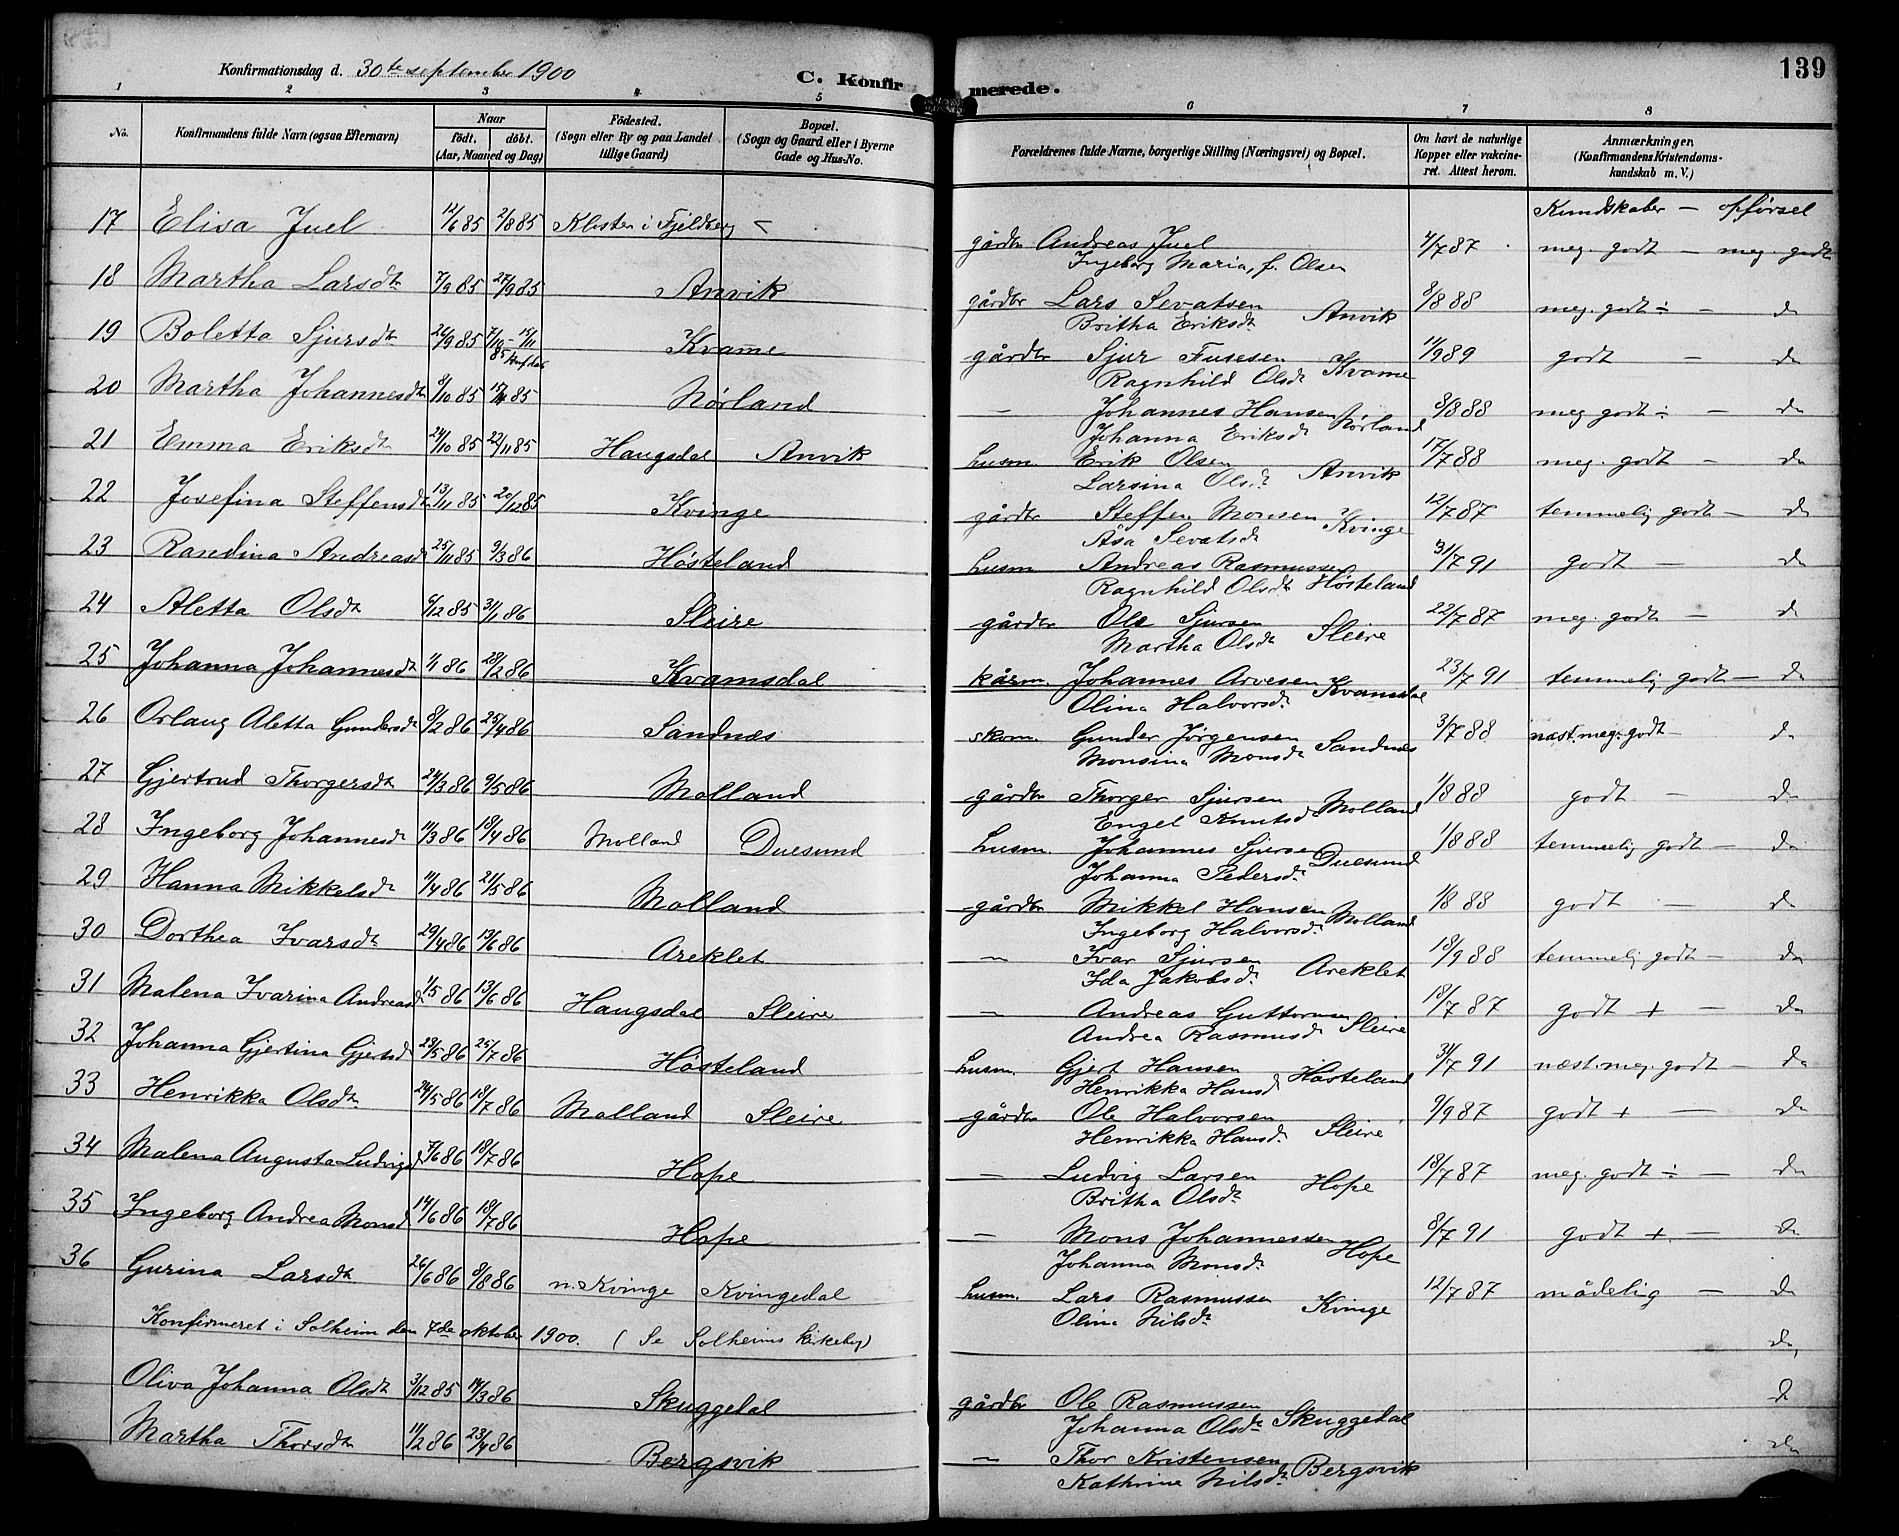 139
Konfirmationsdag d. 30te september 1900
C. Konfirmerede.
1 2 3 4 5 6 7 8
No. Konfirmandens fulde Navn (ogsaa Efternavn) Naar født. døbt. (Aar, Maaned og Dag) Fødested. (Sogn eller By og paa Landet tillige Gaard) Bopæl. (Sogn og Gaard eller i Byerne Gade og Hus-No. Forældrenes fulde Navne, borgerlige Stilling (Næringsvei) og Bopæl. Om havt de naturlige Kopper eller vakcineret. Attest herom. Anmærkninger (Konfirmandens Kristendomskundskab m. V.)
Kundskaber — opførsel
17 Elisa Juel 12/6 85 2/8 85 Kloster i Fjeldberg gårdbr Andreas Juel 4/7 87 meg. godt — meg. godt
Ingeborg Maria, f. Olsen
18 Martha Larsdtr 7/9 85 27/9 85 Anvik gårdbr Lars Sevatsen Anvik 8/8 88 meg. godt ÷ — do
Britha Eriksdtr
19 Boletta Sjursdtr 26/9 85 7/10 - 15/11 85 Kvame gårdbr Sjur Fusesen Kvame 11/9 89 godt — do
Ragnhild Olsdtr
20 Martha Johannesdtr 8/10 85 15/11 85 Nørland — Johannes Hansen Nørland 8/8 88 meg godt ÷ — do
Johanna Eriksdtr
21 Emma Eriksdtr 24/10 85 22/11 85 Haugsdal Anvik husm. Erik Olsen Anvik 17/7 88 meg. godt — do
Larsina Olsdtr
22 Josefina Steffensdtr 13/11 85 20/12 85 Kvinge gårdbr Steffen Monsen Kvinge 12/7 87 temmelig godt — do
Åsa Sevatsdtr
23 Randina Andreasdtr 25/11 85 9/3 86 Høsteland husm Andreas Rasmussen Høsteland 31/7 91 godt — do
Ragnhild Olsdtr
24 Aletta Olsdtr 6/12 85 31/1 86 Sleire gårdbr Ole Sjursen Sleire 22/7 87 meg. godt — do
Martha Olsdtr
25 Johanna Johannesdtr 1/1 86 28/2 86 Kvamsdal kårm. Johannes Arvesen Kvamsdal 23/7 91 temmelig godt — do
Olina Halvorsdtr
26 Orlaug Aletta Gundersdtr 8/2 86 25/4 86 Sandnæs skom. Gunder Jørgensen Sandnæs 3/7 88 næst. meg. godt — do
Monsina Monsdtr
27 Gjertrud Thorgersdtr 24/3 86 9/5 86 Molland gårdbr Thorger Sjursen Molland 1/8 88 godt — do
Engel Knutsd
28 Ingeborg Johannesdtr 11/3 86 18/4 86 Molland Duesund husm. Johannes Sjursen Duesund 1/8 88 temmelig godt — do
Johanna Pedersdtr
29 Hanna Mikkelsdtr 11/4 86 21/5 86 Molland gårdbr Mikkel Hansen Molland 1/8 88 godt — do
Ingeborg Halvorsdtr
30 Dorthea Ivarsdtr 29/4 86 13/6 86 Areklet — Ivar Sjursen Areklet 18/9 88 temmelig godt — do
Ida Jakobsdtr
31 Malena Ivarina Andreasdtr 1/5 86 13/6 86 Haugsdal Sleire — Andreas Guttormsen Sleire 18/7 87 godt + — do
Andrea Rasmusdtr
32 Johanna Gjertina Gjertsd 23/5 86 25/7 86 Høsteland husm. Gjert Hansen Høsteland 31/7 91 næst. meg. godt — do
Henrikka Hansd
33 Henrikka Olsdtr 24/5 86 18/7 86 Molland Sleire gårdbr Ole Halvorsen Sleire 9/9 87 godt + — do
Henrikka Hansdtr
34 Malena Augusta Ludvigsd 7/6 86 18/7 86 Hope — Ludvig Larsen Hope 18/7 87 meg. godt ÷ — do
Britha Olsdtr
35 Ingeborg Andrea Monsd 14/6 86 18/7 86 Hope — Mons Johannessen Hope 8/7 91 godt + — do
Johanna Monsdtr
36 Gurina Larsdtr 26/6 86 8/8 86 n. Kvinge Kvingedal husm. Lars Rasmussen Kvinge 12/7 87 mådelig — do
Olina Nilsdtr
Konfirmeret i Solheim den 7de oktober 1900. (Se Solheims kirkebog) do,
Oliva Johanna Olsdtr 3/12 85 14/3 86 Skuggedal gårdbr Ole Rasmussen Skuggedal do
Johanna Olsdtr
Martha Thorsdtr 11/2 86 23/4 86 Bergsvik — Thor Kristensen Bergsvik do
Kathrine Nilsdtr